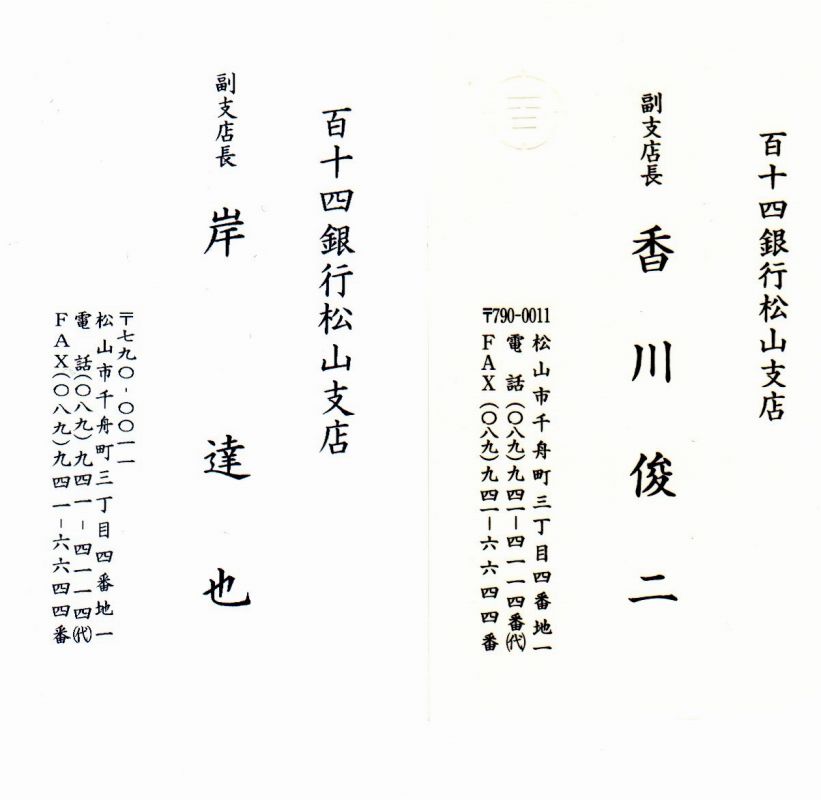 百十四銀行松山支店
副支店長 香川俊二
〒790-0011
松山市千舟町三丁目四番地一
電話(〇八九)九四一-四一一四番(代)
FAX(〇八九)九四一-六六四四番
百十四銀行松山支店
副支店長 岸達也
〒七九〇-〇〇一一
松山市千舟町三丁目四番地一
電話(〇八九)九四一-四一一四(代)
FAX(〇八九)九四一-六六四四番